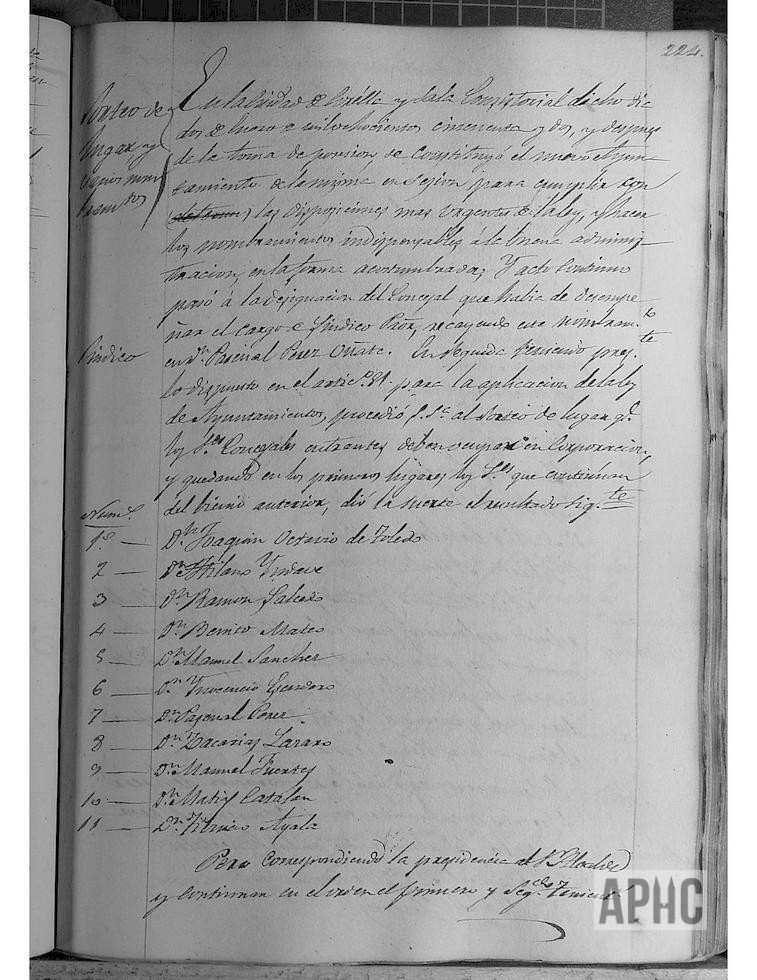 224.
Sorteo de
lugar y
En la Ciudad de Corella y Sala Consistorial dicho dia
dos de Enero de mil ochocientos cincuenta y dos, y despues
de la toma de posesion se constituyó el nuevo Ayun-
tamiento de la misma en sesion para cumplir con
las disposiciones mas urgentes de la ley, y hacer
los nombramientos indispensables á la buena adminis-
tracion, en la forma acostumbrada; Y acto continuo
pasó á la designacion del Concejal que habia de desempe-
ñar el cargo de Sindico Pror, recayendo este nombramto
Sindico
en Dn Pascual Perez Oñate. En seguida teniendo preste
lo dispuesto en el artic.o 81. para la aplicacion de la ley
de Ayuntamientos, procedió S. Sa al sorteo de lugar qe
los S.res Concejales entrantes deben ocupar en Corporacion,
y quedando en los primeros lugares los S.res que continúan
del bienio anterior, dió la suerte el resultado sig.te
Nums.
1o — Dn Joaquin Octavio de Toledo
2 — Dn Hilario Yndave
3 — Dn Ramon Salcedo
4 — Dn Benito Mateo
5 — Dn Manuel Sanchez
6 — Dn Ynocencio Escudero
7 — Dn Pascual Perez
8 — Dn Zacarias Lazaro
9 — Dn Manuel Fuertes
10 — Dn Matias Catalan
11 — Dn Ayala
Pero correspondiendo la presidencia al Sr Alcalde
y continuan en el orden el primero y Seg.do Teniente
APHC